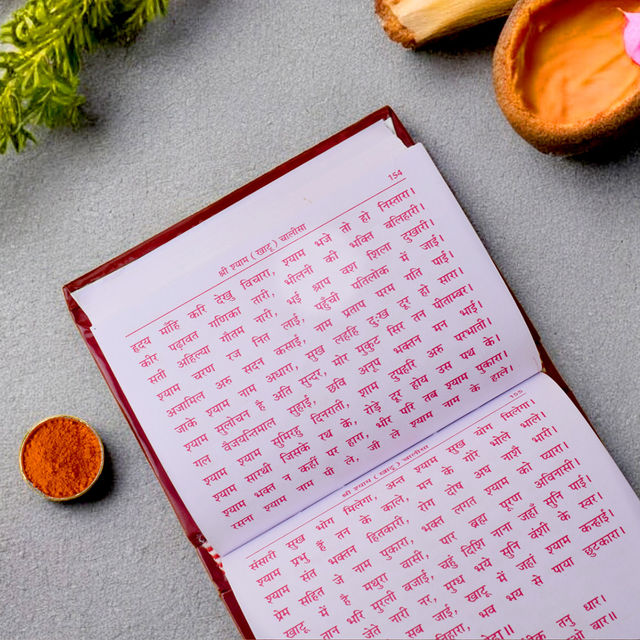 श्री श्याम ( खाटू ) चालीसा 154
हृदय माँहि करि देखु विचारा, श्याम भजे तो हो निस्तारा।
कीर पढ़ावत गणिका तारी, भीलनी की भक्ति बलिहारी।
सती अहिल्या गौतम नारी, भई श्राप वश शिला दुखारी।
श्याम चरण रज नित लाई, पहुँची पतिलोक में जाई।
अजामिल अरु सदन कसाई, नाम प्रताप परम गति पाई।
जाके श्याम नाम अधारा, सुख लहहि दुःख दूर हो सारा।
श्याम सुलोचन है अति सुन्दर, मोर मुकुट सिर तन पीताम्बर।
गल वैजयन्तिमाल सुहाई, छवि अनूप भक्तन मन भाई।
श्याम श्याम सुमिरहु दिनराती, शाम दुपहरि अरु परभाती।
श्याम सारथी जिसके रथ के, रोड़े दूर होय उस पथ के।
श्याम भक्त न कहीं पर हारा, भीर परि तब श्याम पुकारा।
रसना श्याम नाम पी ले, जी ले श्याम नाम के हाले।
श्री श्याम ( खाटू ) चालीसा 155
संसारी सुख भोग मिलेगा, अन्त श्याम सुख योग मिलेगा।
श्याम प्रभु हैं तन के काले, मन के गोरे भोले भाले।
श्याम संत भक्तन हितकारी, रोग दोष अघ नाशै भारी।
प्रेम सहित जे नाम पुकारा, भक्त लगत श्याम को प्यारा।
खाटू में है मथुरा वासी, पार ब्रह्म पूरण अविनासी।
तान भरि मुरली बजाई, चहुं दिशि नाना जहाँ सुनि पाई।
जेते नारी नर, मुग्ध भये सुनि वंशी के स्वर।
सब जाई, जहां श्याम कन्हाई।
भव भय से पाया छुटकारा।